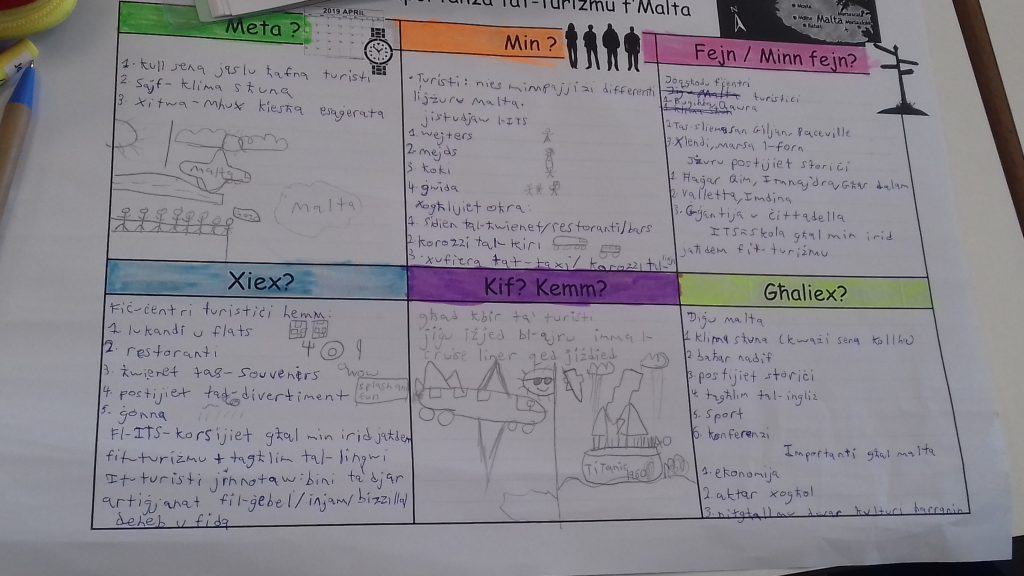 tat-turizmu f'Malta
Meta ?
2019 APRIL
1. Kull sena jaslu ħafna turisti
2. Sajf- klima sħuna
3. Xitwa- mhux kiesħa esaġerata
malta
malta
Min ?
• Turisti: nies minn pajjiżi differenti
li jżuru malta.
jistudjaw l-ITS
1 wejters
2 mejds
3 koki
4 gwida
Xogħlijiet oħra:
1. Sdien tal-ħwienet/restoranti/bars
2 Karozzi tal-kiri
3. xufiera tat-taxi/ karozzi tal-
Fejn / Minn fejn?
Joqgħodu f'ċentri
turistiċi
Qawra
2 Tas-sliema, san Ġiljan, Paceville
3 Xlendi, marsa l-forn
Jżuru postijiet storiċi
1 Ħaġar Qim, Imnajdra, Għar dalam
2. Valletta, Imdina
3. Ġgantija u ċittadella
ITS = skola għal min irid
jaħdem fit-turizmu
Malta
Xiex?
Fiċ-ċentri turistiċi hemm:
1. lukandi u flats
2. restoranti
3. ħwienet tas-souveniers
4 postijiet tad-divertiment
wow
splash and
fun
5. ġonna
Fl-ITS-korsijiet għal min irid jaħdem
fit-turizmu + tagħlim tal-lingwi
It-turisti jinnotaw: bini ta djar
artiġjanat fil-ġebel/injam/bizzilla/
deheb u fidda
Kif? Kemm?
għadd kbir ta' turisti
jiġu iżjed bl-ajru imma l-
cruise liner qed jiżdied
Titanic
Għaliex?
Jiġu malta
1 klima sħuna (kważi sena kollha)
2 baħar nadif
3 postijiet storiċi
4 tagħlim tal-ingliż
5. Sport
6. konferenzi
Importanti għal malta
1. ekonomija
2. aktar xogħol
3. nitgħallmu dwar kulturi barranin